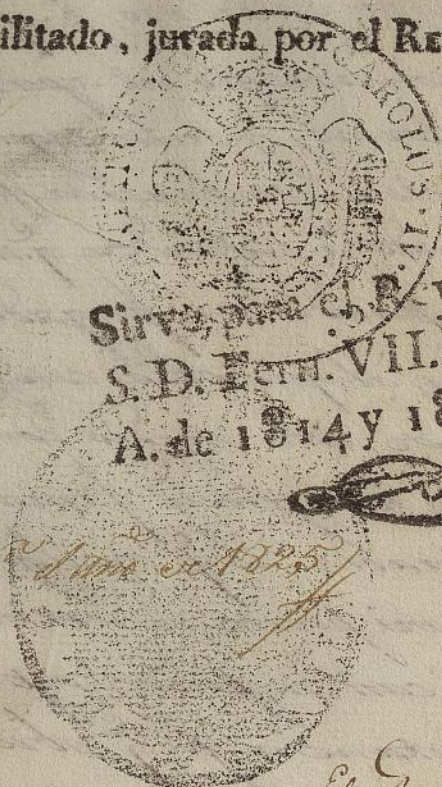 ilitado, jurada por el Re
CAROLUS · IV ·
Sirva, para el Rey
S. D. Fern. VII.
A. de 1814 y 18
el año de 1825